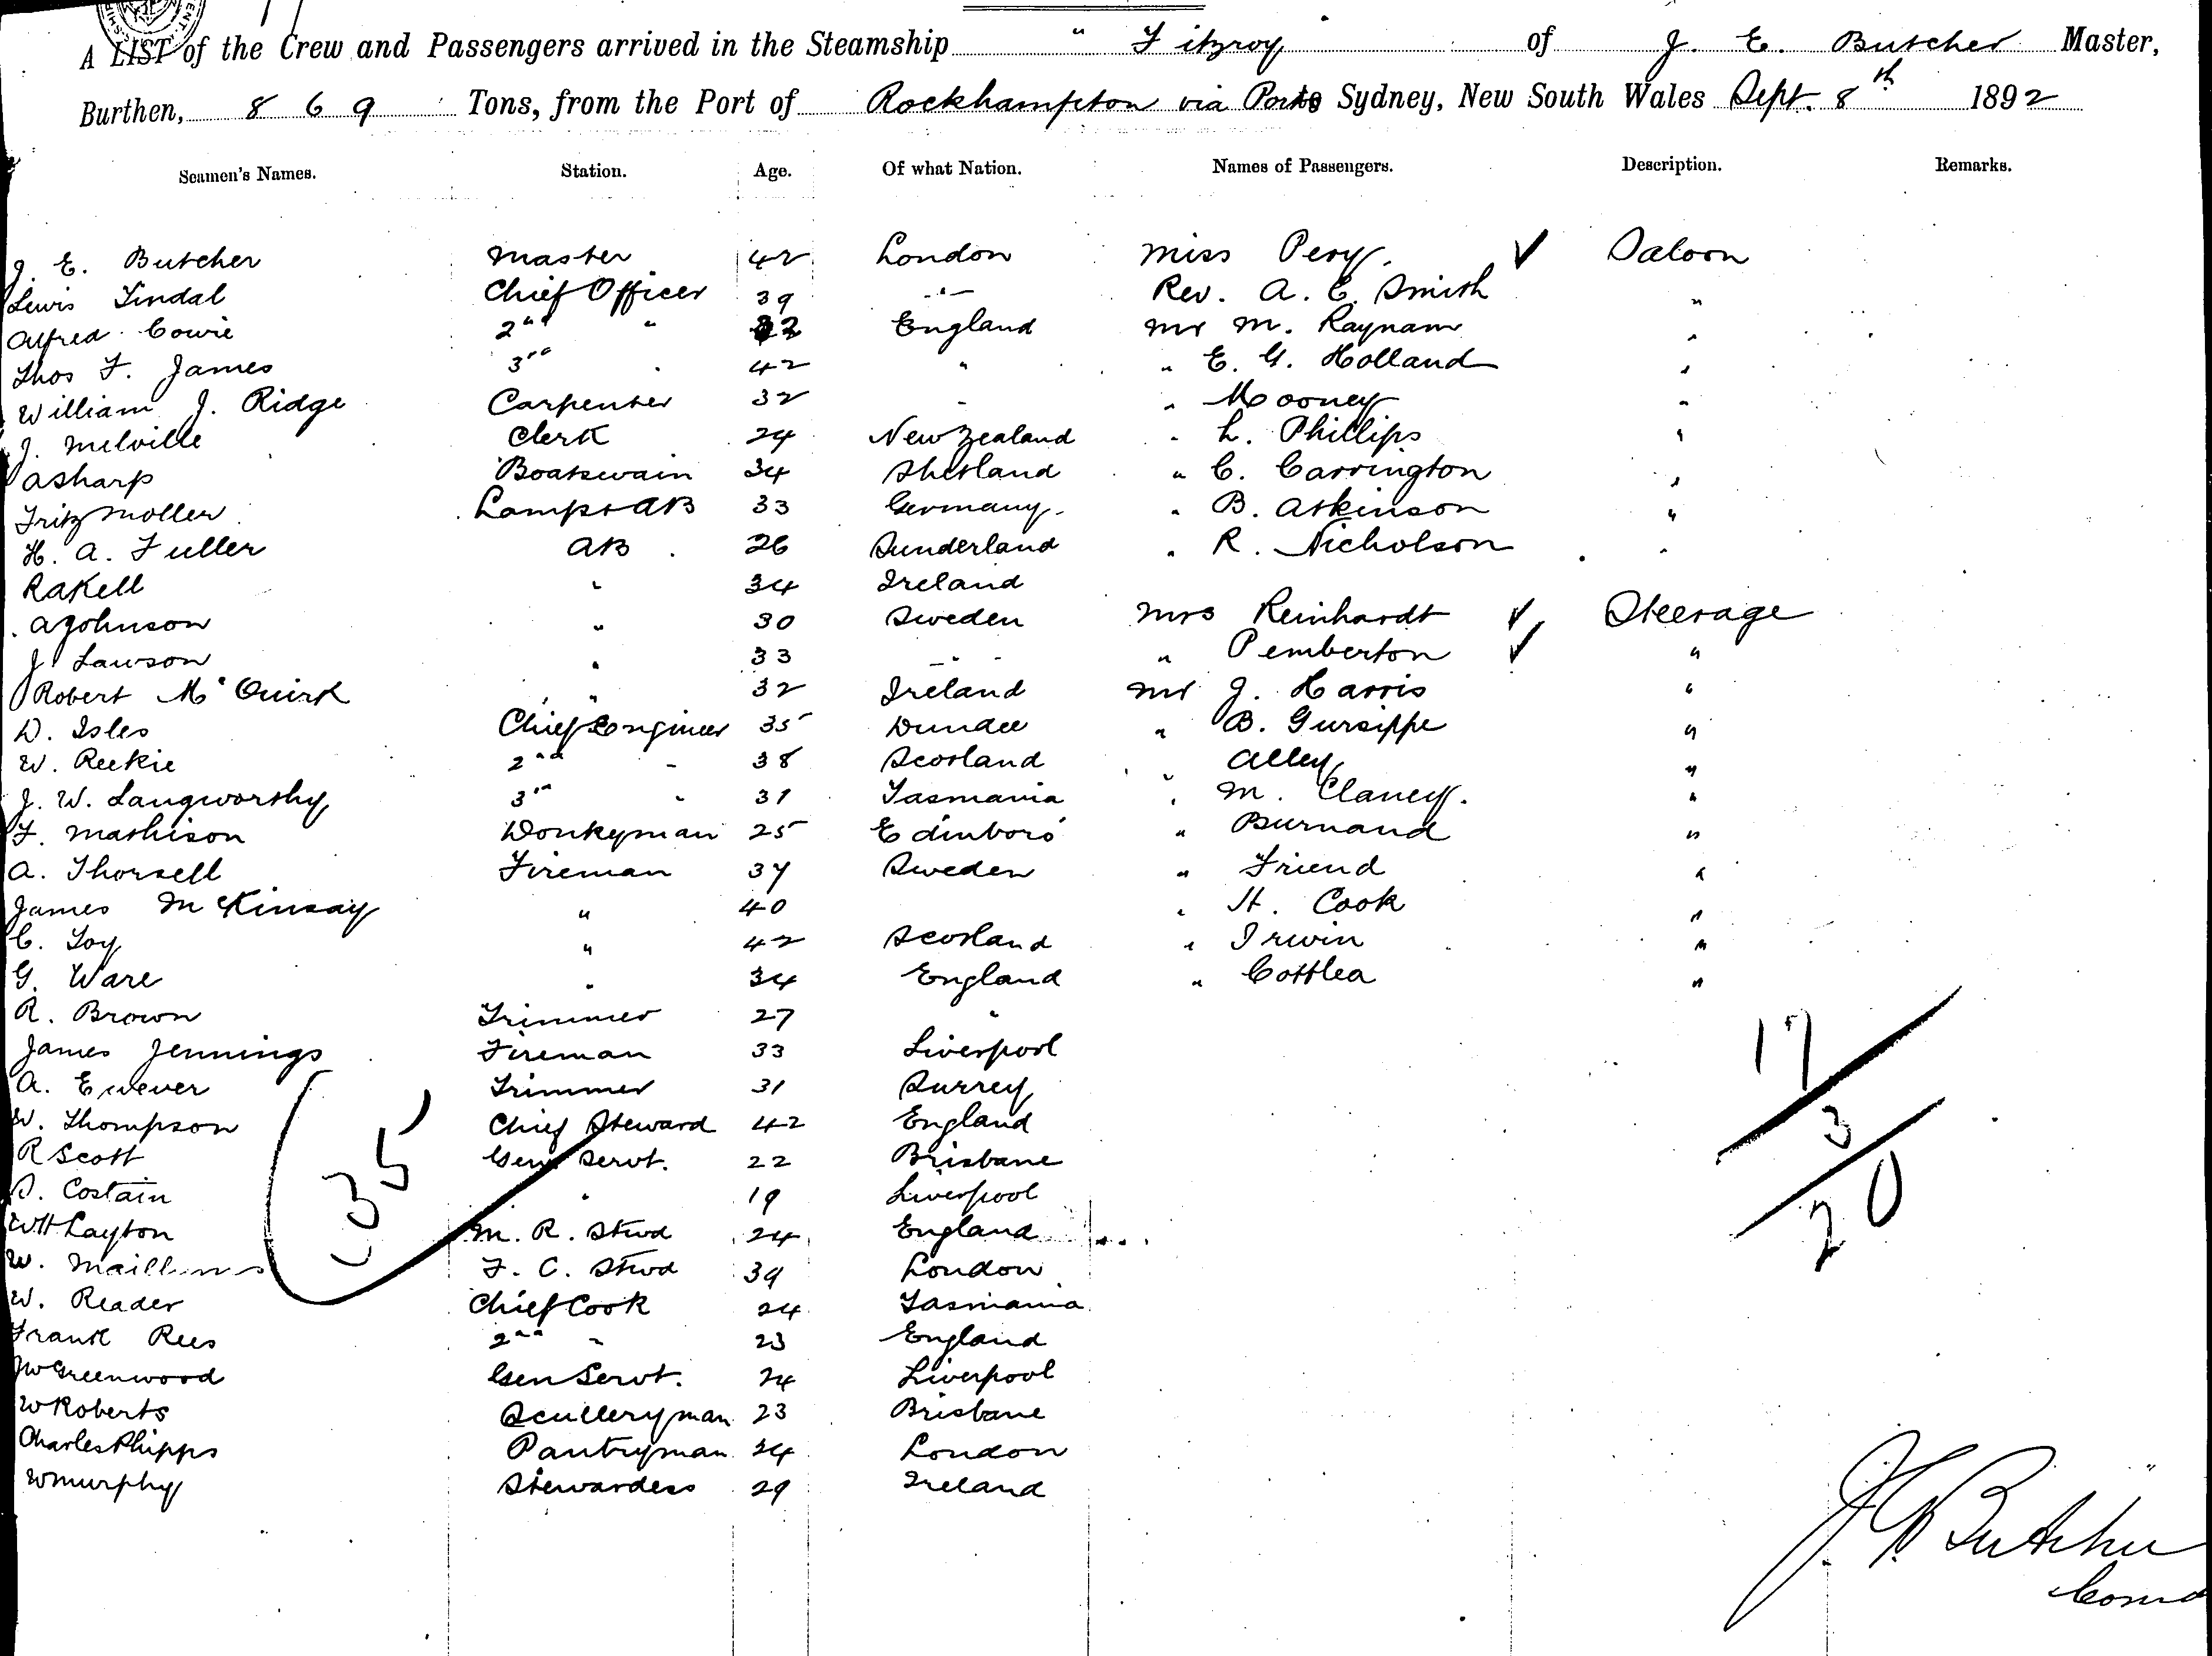 A LIST of the Crew and Passengers arrived in the Steamship " Fitzroy of J. E. Butcher Master,
Burthen, 869 Tons, from the Port of Rockhampton via Ports Sydney, New South Wales Sept. 8th 1892
Seamen's Names. Station. Age. Of what Nation. Names of Passengers. Description. Remarks.
J. E. Butcher Master 42 London Miss Pery. ✓ Saloon
Lewis Tindal Chief Officer 39 " Rev. A. E. Smith "
Alfred Cowie 2nd " 32 England Mr M. Raynam "
Thos F. James 3rd " 42 " " E. G. Holland "
William J. Ridge Carpenter 32 " " Mooney "
J. Melville Clerk 24 New Zealand " L. Phillips "
A Sharp Boatswain 34 Shetland " C. Carrington "
Fritz Moller Lamps & AB 33 Germany. " B. Atkinson "
H. A. Fuller AB 26 Sunderland " R. Nicholson "
R Kell " 34 Ireland
A Johnson " 30 Sweden Mrs Reinhardt ✓ Steerage
J Lawson " 33 " " Pemberton ✓ "
Robert McQuirk " 32 Ireland Mr J. Harris "
D. Isles Chief Engineer 35 Dundee " B. Gursippe "
W. Reekie 2nd " 38 Scotland " Alley "
J. W. Langworthy 3rd " 31 Tasmania " M. Clancy. "
F. Mathison Donkyman 25 Edinboro' " Burnand "
A. Thorsell Fireman 37 Sweden " Friend "
James McKinsay " 40 " H. Cook "
C. Toy " 42 Scotland " Irwin "
G. Ware " 34 England " Cottlea "
R. Brown Trimmer 27 "
James Jennings Fireman 33 Liverpool
A. Ewever Trimmer 31 Surrey
W. Thompson Chief Steward 42 England
R Scott Genl Servt. 22 Brisbane
S. Costain " 19 Liverpool
WH Layton M. R. Stwd 24 England
W. F. C. Stwd 39 London
W. Reader Chief Cook 24 Tasmania
Frank Rees 2nd " 23 England
JW Greenwood Gen Servt. 24 Liverpool
W Roberts Sculleryman 23 Brisbane
Charles Phipps Pantryman 24 London
W Murphy Stewardess 29 Ireland
35
17
3
20
J. E. Butcher